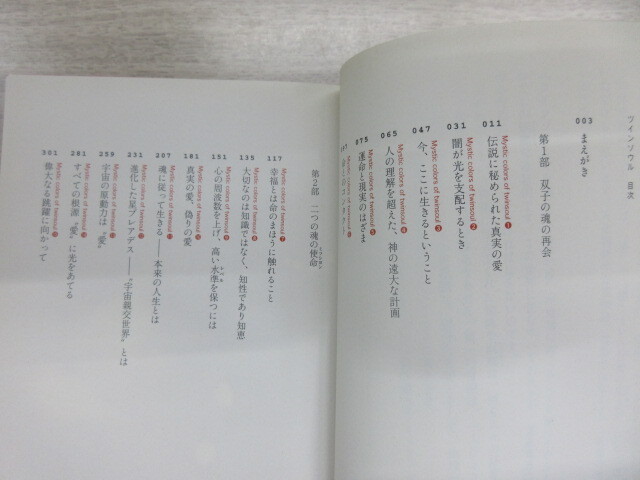 ツインソウル 目次
003
まえがき
第1部 双子の魂の再会
011
Mystic colors of twinsoul 1
伝説に秘められた真実の愛
031
Mystic colors of twinsoul 2
闇が光を支配するとき
047
Mystic colors of twinsoul 3
今、ここに生きるということ
065
Mystic colors of twinsoul 4
人の理解を超えた、神の遠大な計画
075
Mystic colors of twinsoul 5
運命と現実のはざま
第2部 二つの魂の使命
117
Mystic colors of twinsoul 7
幸福とは命のまほうに触れること
135
Mystic colors of twinsoul 8
大切なのは知識ではなく、知性であり知恵
151
Mystic colors of twinsoul 9
心の周波数を上げ、高い水準を保つには
181
Mystic colors of twinsoul
真実の愛、偽りの愛
207
Mystic colors of twinsoul
魂に従って生きる——本来の人生とは
231
Mystic colors of twinsoul
進化した星プレアデス——〝宇宙親交世界〟とは
259
Mystic colors of twinsoul
宇宙の原動力は〝愛〟
281
Mystic colors of twinsoul
すべての根源〝愛〟に光をあてる
301
Mystic colors of twinsoul
偉大なる跳躍に向かって